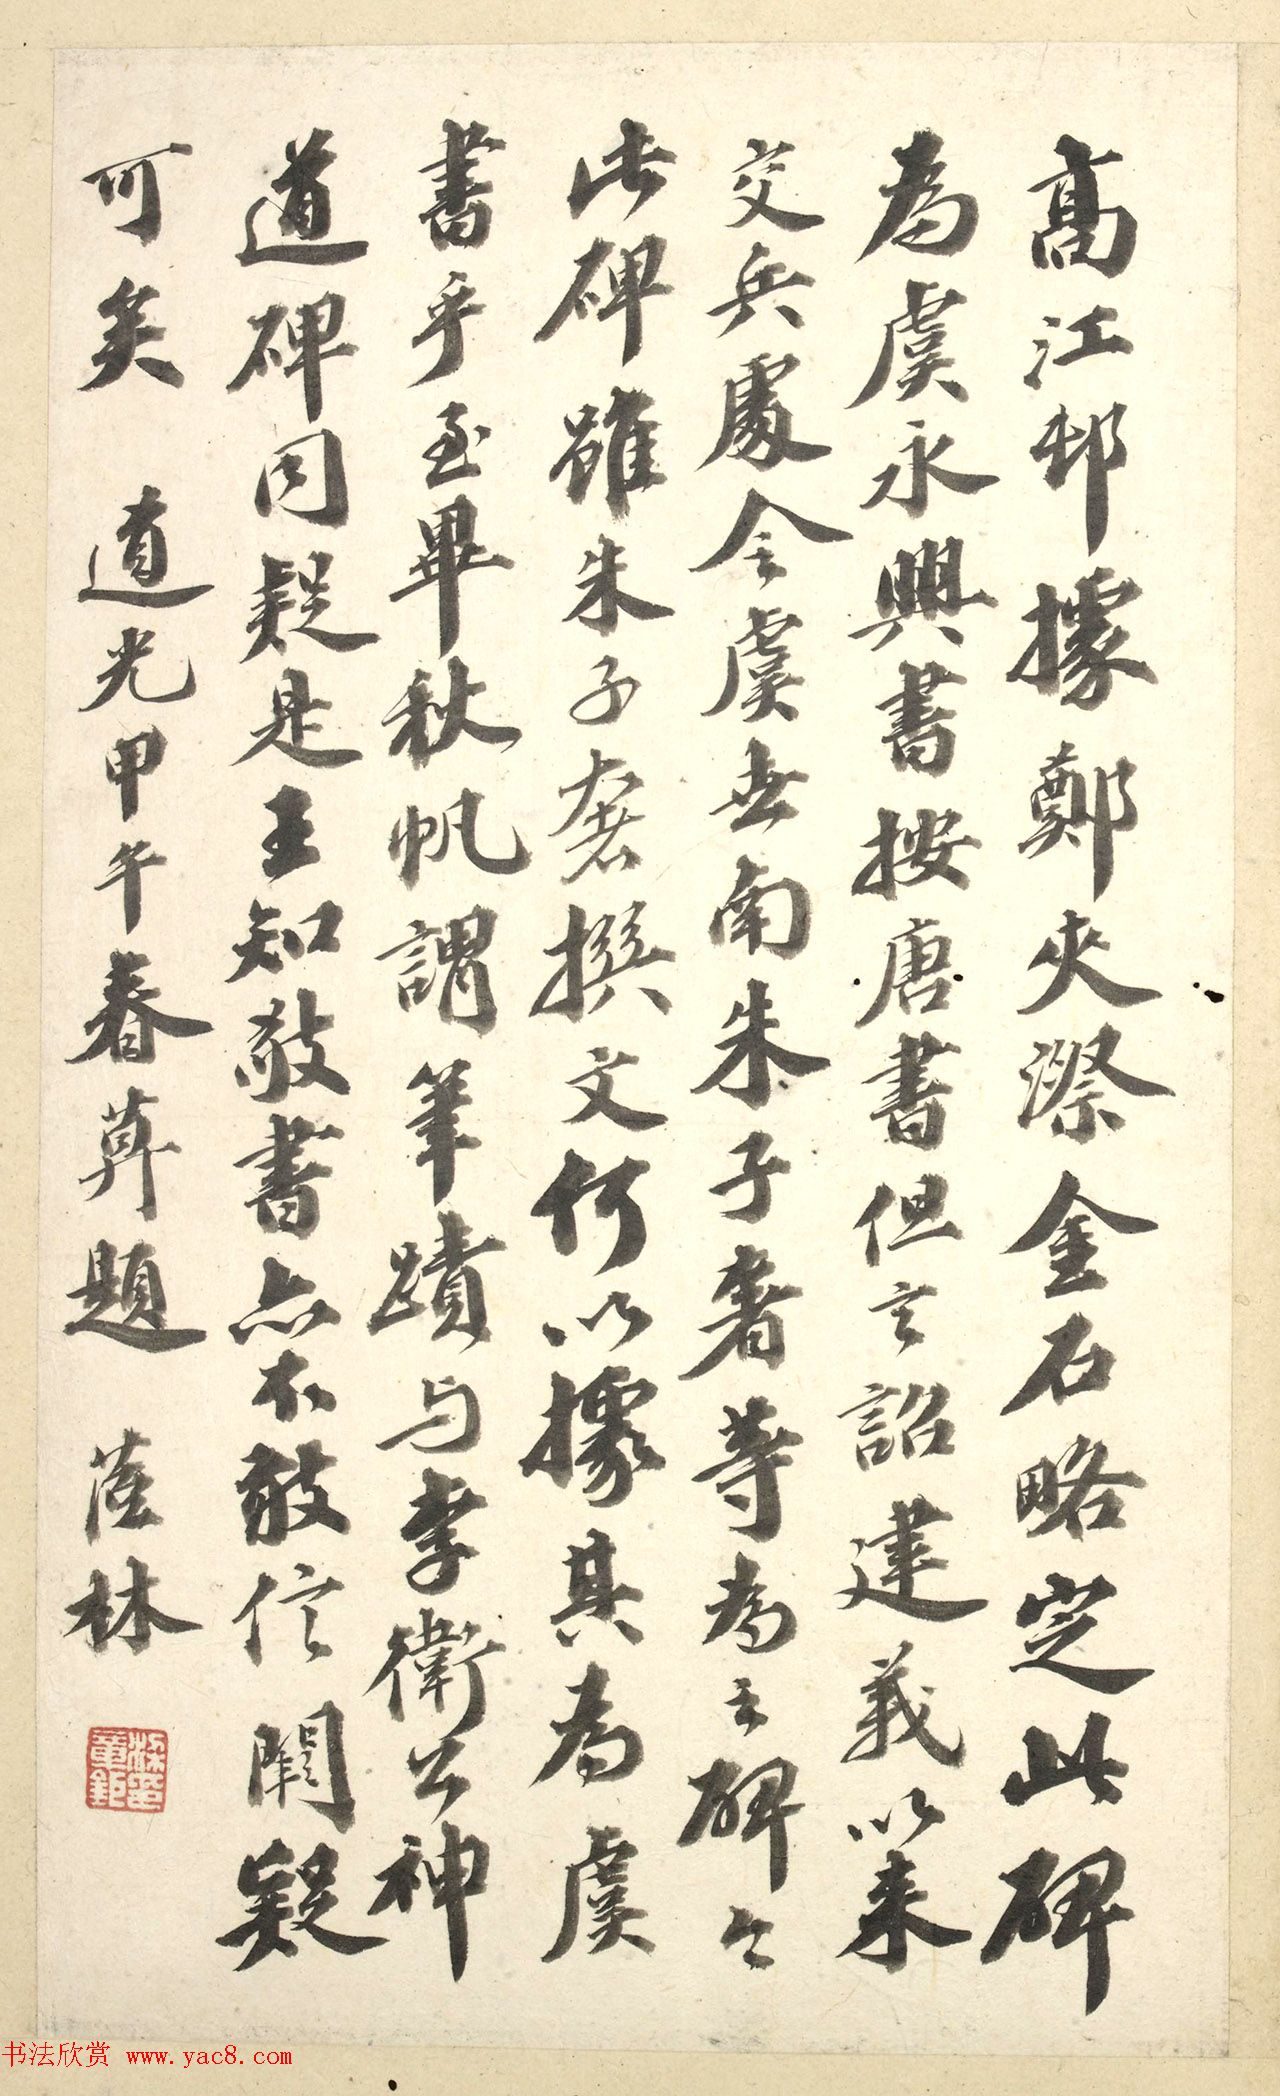 髙江邨據鄭夾漈金石略定此碑
為虞永興書按唐書但言詔建義以来
交兵處令虞世南朱子奢等為之碑今
此碑雖朱子奢撰文何以據其為虞
書乎至畢秋帆謂筆蹟与李衛公神
道碑同疑是王知敬書亦不敢信闕疑
可矣 道光甲午春莫題 蔭林
书法欣赏 www.yac8.com